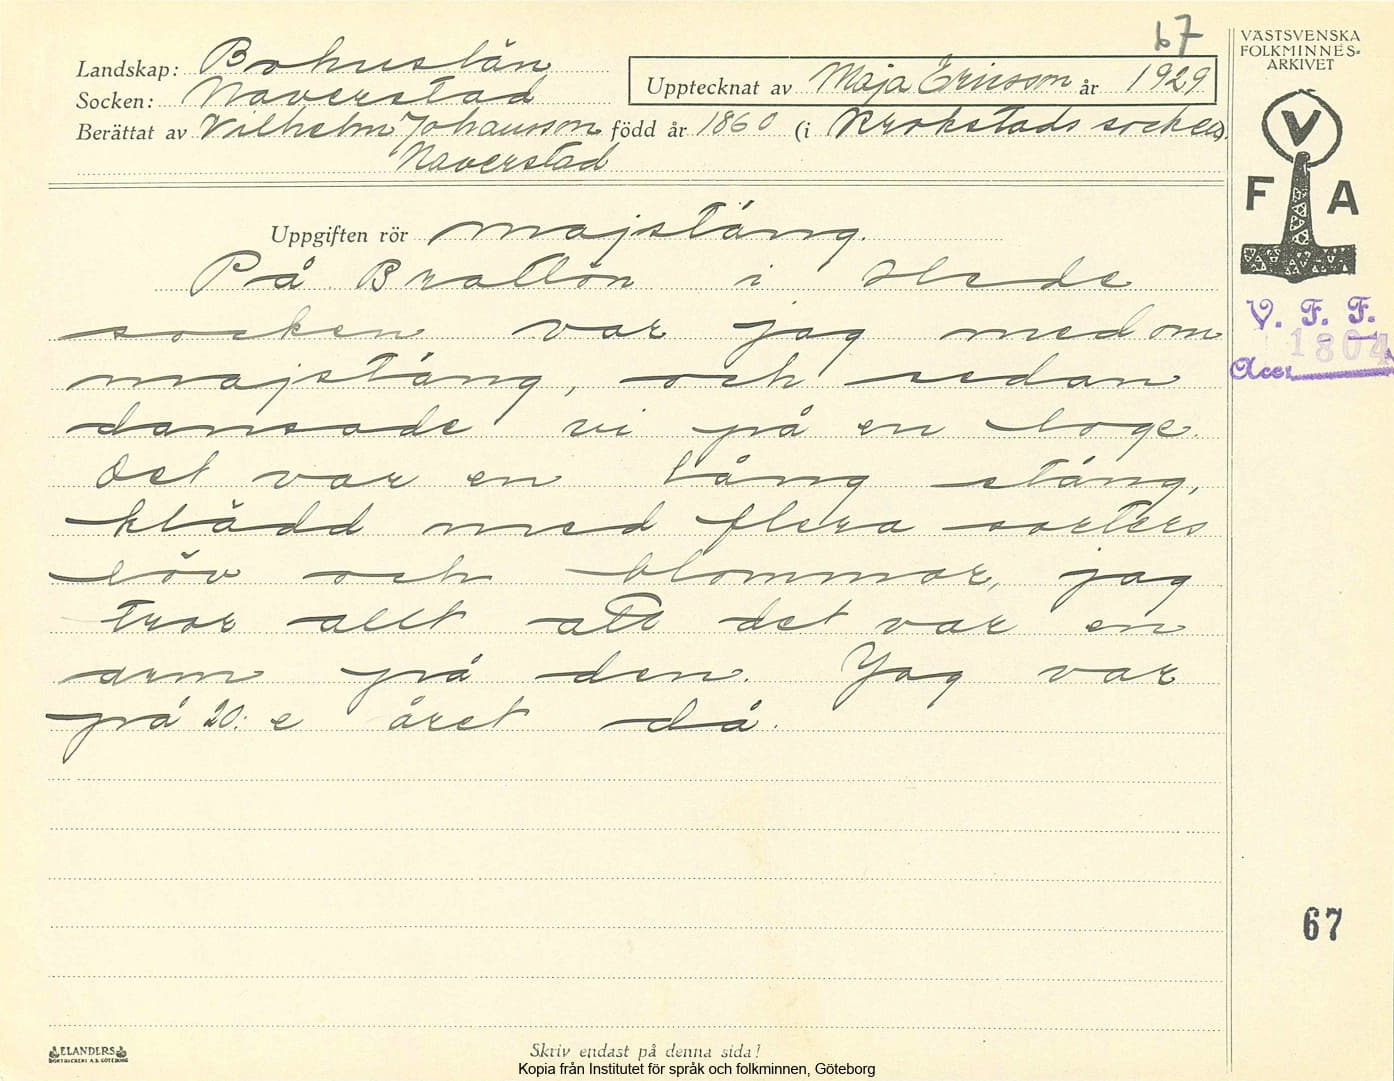 67
VÄSTSVENSKA
FOLKMINNES-
ARKIVET
Landskap: Bohuslän
Socken: Naverstad
Upptecknat av Maja Ericsson år 1929
Berättat av Vilhelm Johansson född år 1860 (i Krokstads socken).
Naverstad
V
F A
V. F. F.
1804
Acc.
Uppgiften rör majstång.
På Brattön i Hede
socken var jag med om
majstång, och sedan
dansade vi på en loge.
Det var en lång stång,
klädd med flera sorters
löv och blommor, jag
tror allt att det var en
arm på den. Jag var
på 20:e året då.
67
ELANDERS
BOKTRYCKERI A.B. GÖTEBORG
Skriv endast på denna sida!
Kopia från Institutet för språk och folkminnen, Göteborg